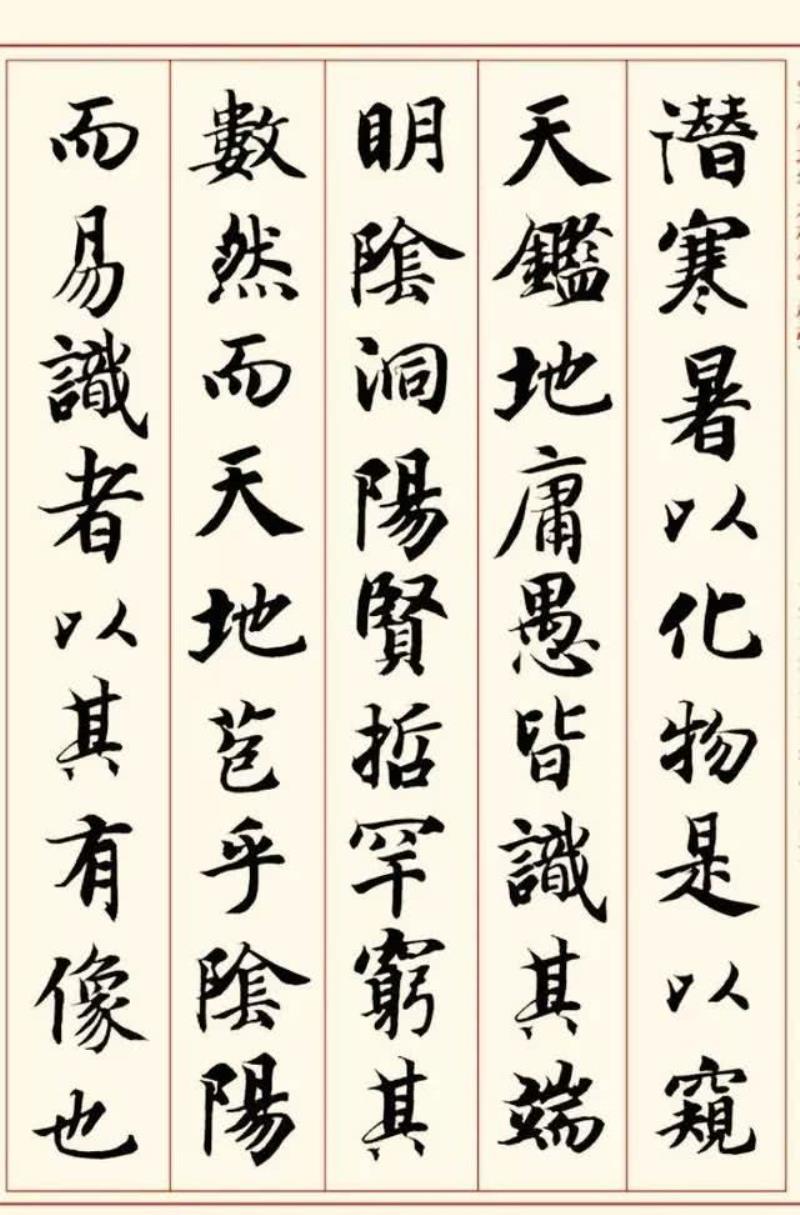 潛寒暑以化物是以窺
天鑑地庸愚皆識其端
明陰洞陽賢哲罕窮其
數然而天地苞乎陰陽
而易識者以其有像也